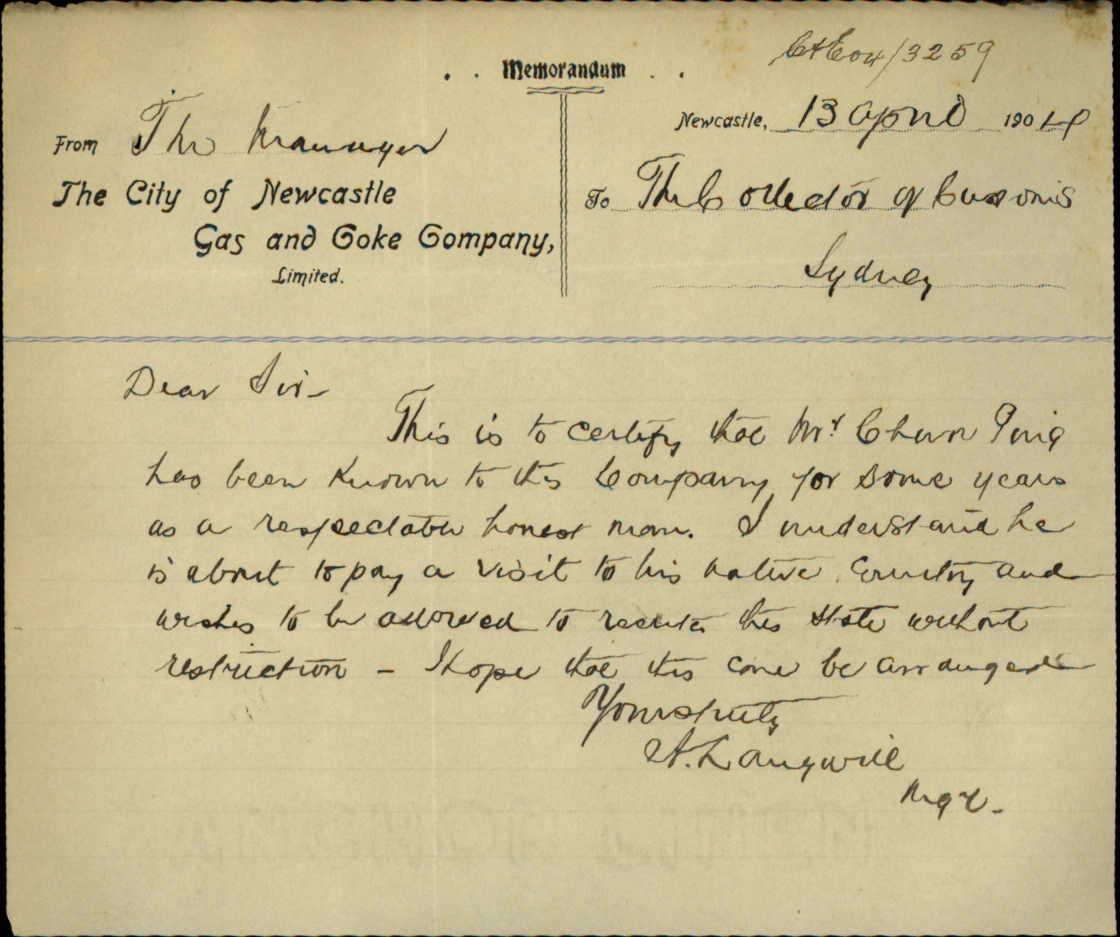 C & E 04/3259
Memorandum
Newcastle, 13 April 1904
From The Manager
The City of Newcastle
Gas and Coke Company,
Limited.
To The Collector of Customs
Sydney
Dear Sir –
This is to certify that Mr. Chun Ping
has been known to this Company for some years
as a respectable honest man. I understand he
is about to pay a visit to his native Country and
wishes to be allowed to reenter this State without
restriction – I hope that this can be arranged
Yours truly
A. Langwill
Mgr.